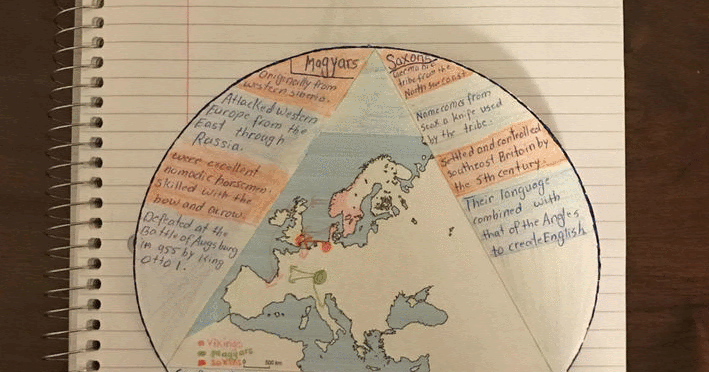 Magyars
Originally from
western siberia.
Attacked Western
Europe from the
East through
Russia.
were excellent
nomadic horsemen.
skilled with the
bow and arrow.
Defeated at the
Battle of Augsburg
in 955 by King
Otto I.
Saxons
Germanic
tribe from the
North sea coast
Name comes from
a knife used
by the tribe.
Settled and controlled
southeast Britain by
the 5th century.
Their language
combined with
that of the Angles
to create English
Vikings
Magyars
Saxons
0 500 km